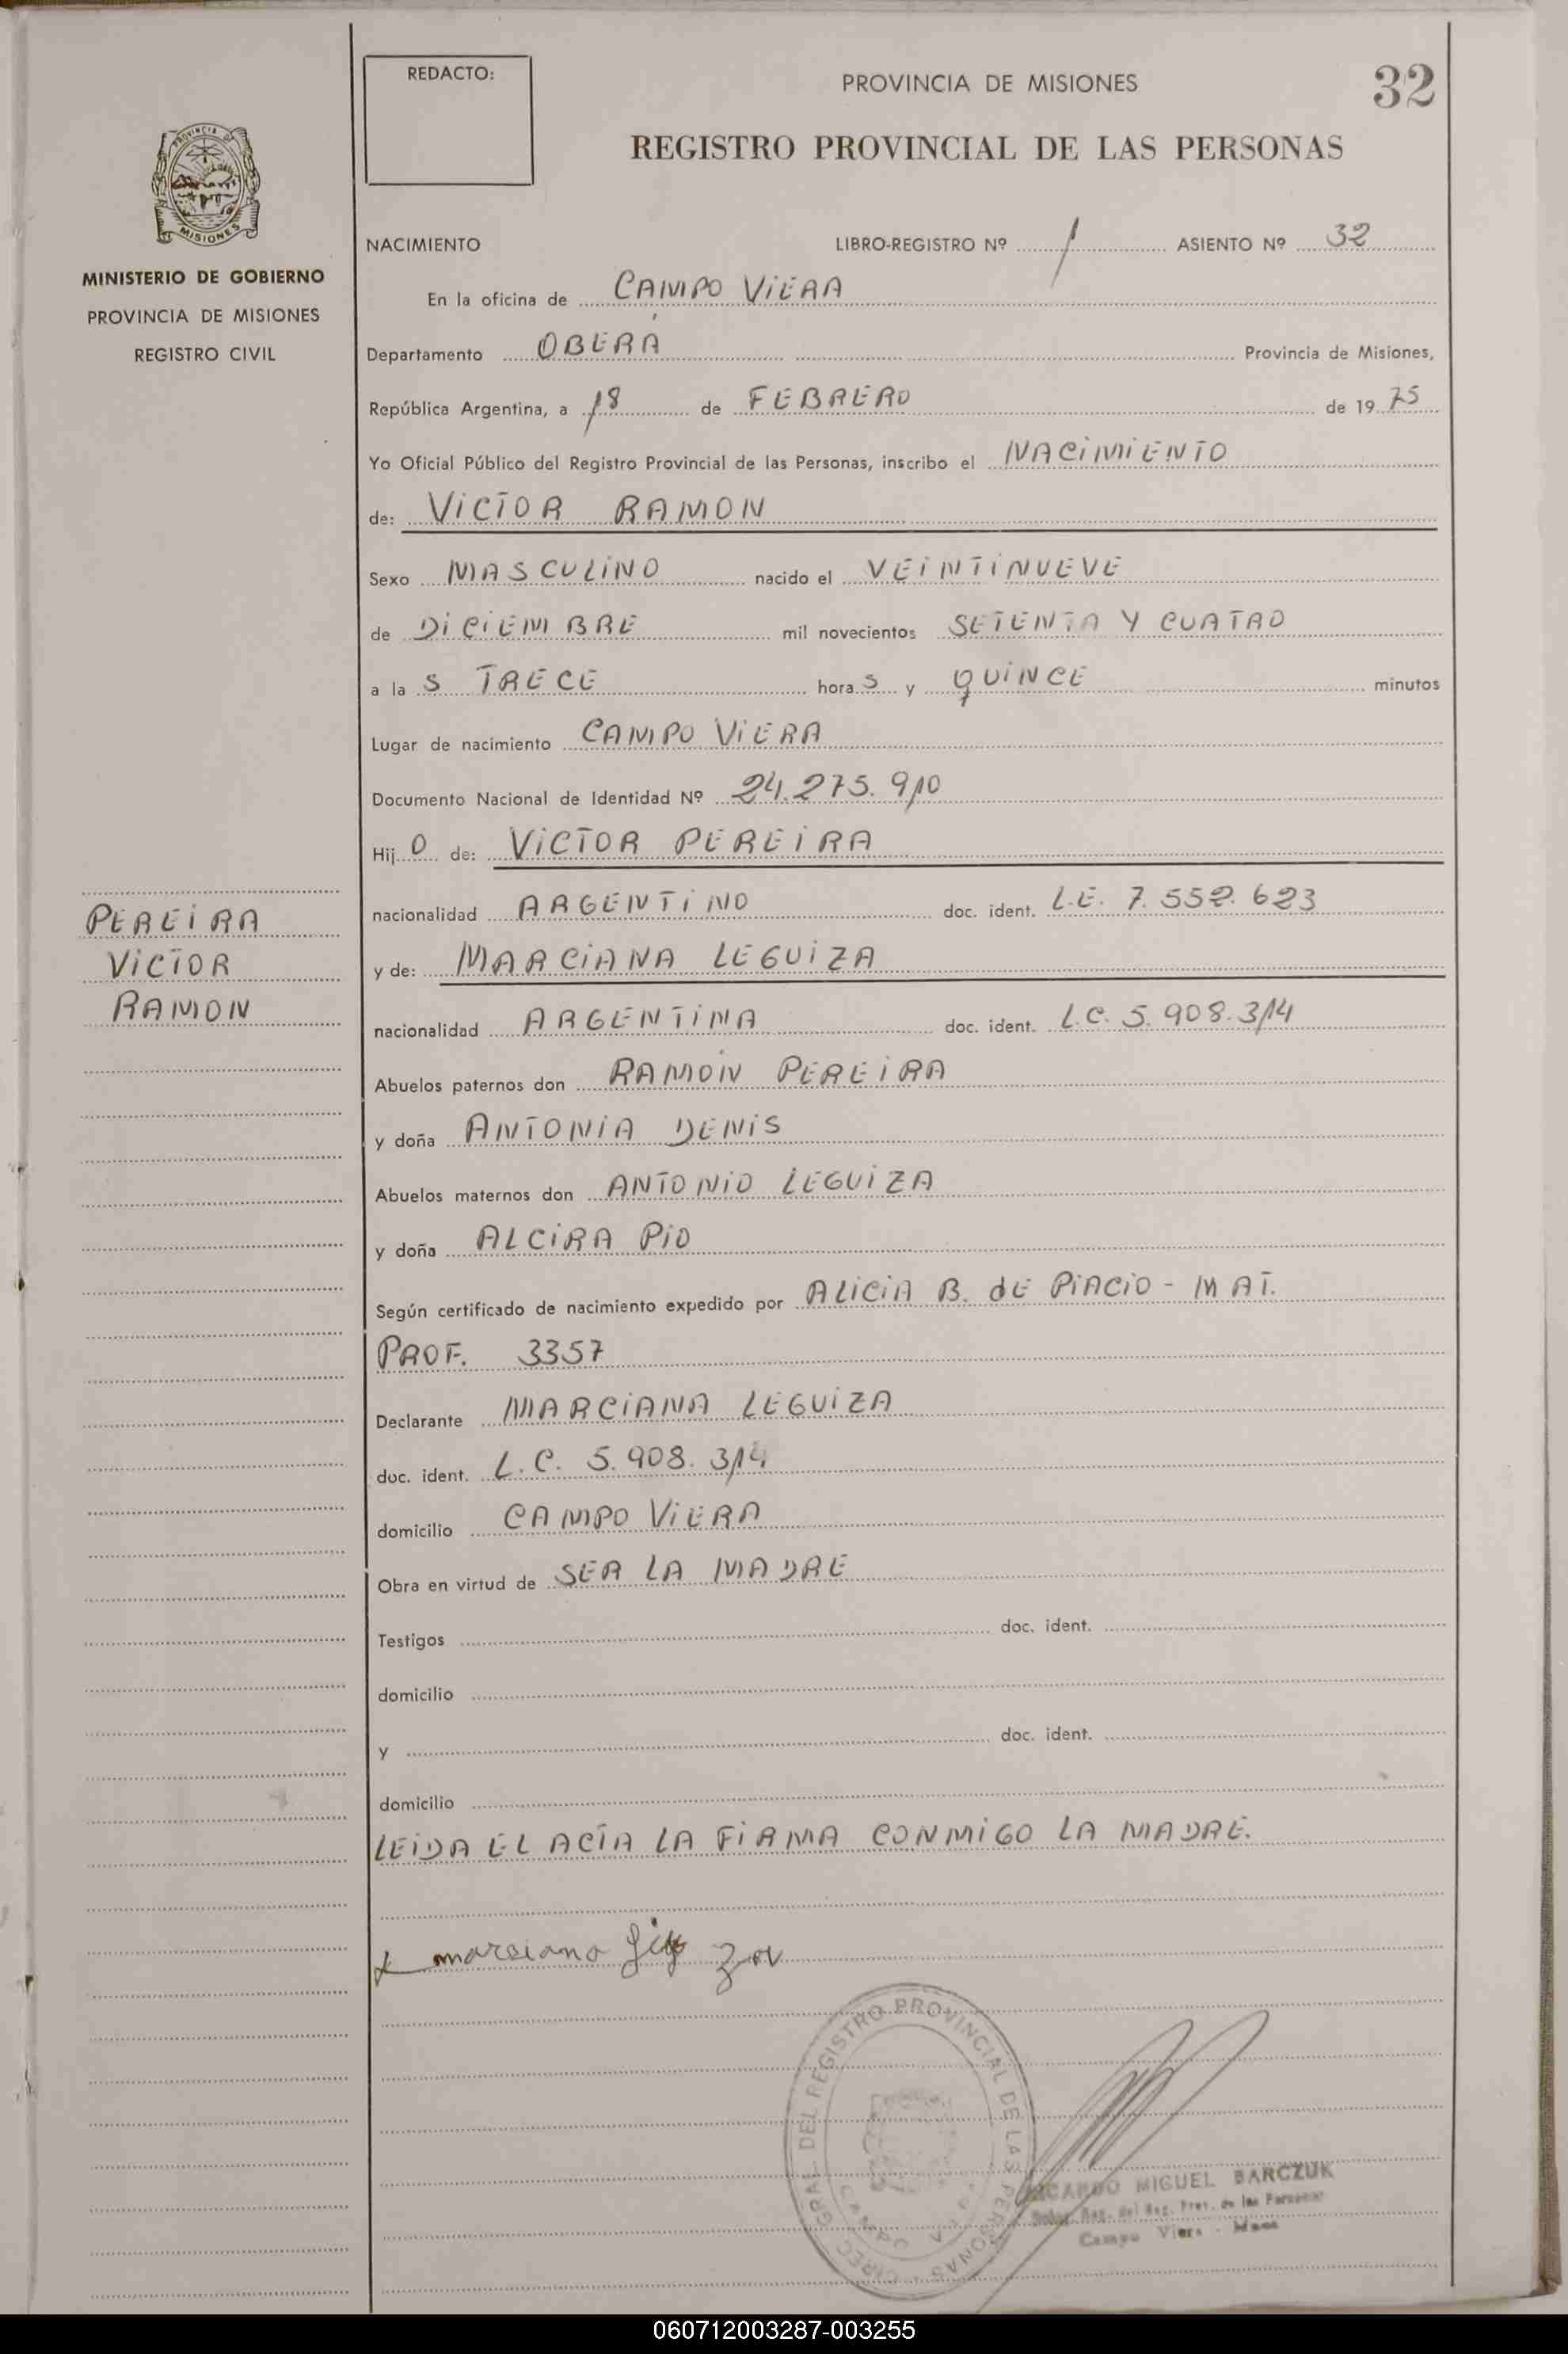 REDACTO:
PROVINCIA DE MISIONES
32
REGISTRO PROVINCIAL DE LAS PERSONAS
PROVINCIA DE
MISIONES
MINISTERIO DE GOBIERNO
PROVINCIA DE MISIONES
REGISTRO CIVIL
NACIMIENTO LIBRO-REGISTRO Nº 1 ASIENTO Nº 32
En la oficina de CAMPO VIERA
Departamento OBERÁ Provincia de Misiones,
República Argentina, a 18 de FEBRERO de 1975
Yo Oficial Público del Registro Provincial de las Personas, inscribo el NACIMIENTO
de: VICTOR RAMON
Sexo MASCULINO nacido el VEINTINUEVE
de DICIEMBRE mil novecientos SETENTA Y CUATRO
a la S TRECE hora S y QUINCE minutos
Lugar de nacimiento CAMPO VIERA
Documento Nacional de Identidad Nº 24.275.910
Hij O de: VICTOR PEREIRA
nacionalidad ARGENTINO doc. ident. L.E. 7.552.623
y de: MARCIANA LEGUIZA
nacionalidad ARGENTINA doc. ident. L.C. 5.908.314
Abuelos paternos don RAMÓN PEREIRA
y doña ANTONIA DENIS
Abuelos maternos don ANTONIO LEGUIZA
y doña ALCIRA PIO
Según certificado de nacimiento expedido por ALICIA B. de PIACIO - MAT.
PROF. 3357
Declarante MARCIANA LEGUIZA
doc. ident. L.C. 5.908.314
domicilio CAMPO VIERA
Obra en virtud de SER LA MADRE
Testigos doc. ident.
domicilio
y doc. ident.
domicilio
LEIDA EL ACTA LA FIRMA CONMIGO LA MADRE.
PEREIRA
VICTOR
RAMON
marciana
GRAL. DEL REGISTRO PROVINCIAL DE LAS PERSONAS
RICARDO MIGUEL BARCZUK
del Reg. Prov. de las Personas
Campo Viera - Mnes
060712003287-003255